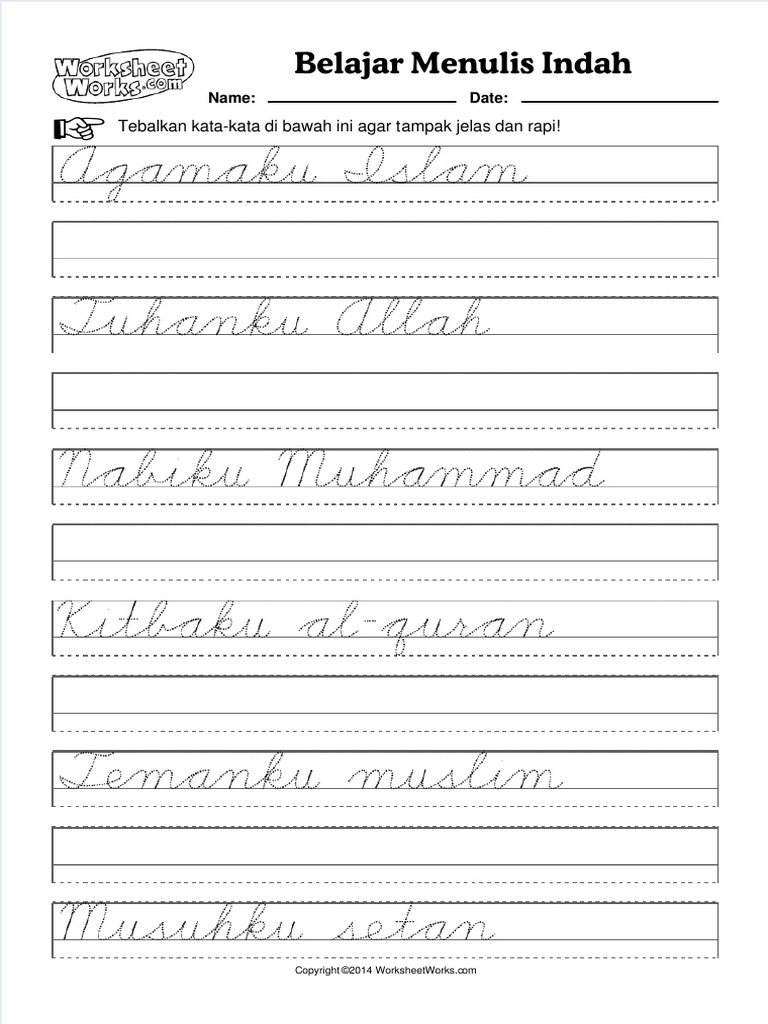 Worksheet Works.com
Belajar Menulis Indah
Name: Date:
Tebalkan kata-kata di bawah ini agar tampak jelas dan rapi!
Agamaku Islam
Tuhanku Allah
Nabiku Muhammad
Kitbaku al-quran
Temanku muslim
Musuhku setan
Copyright ©2014 WorksheetWorks.com